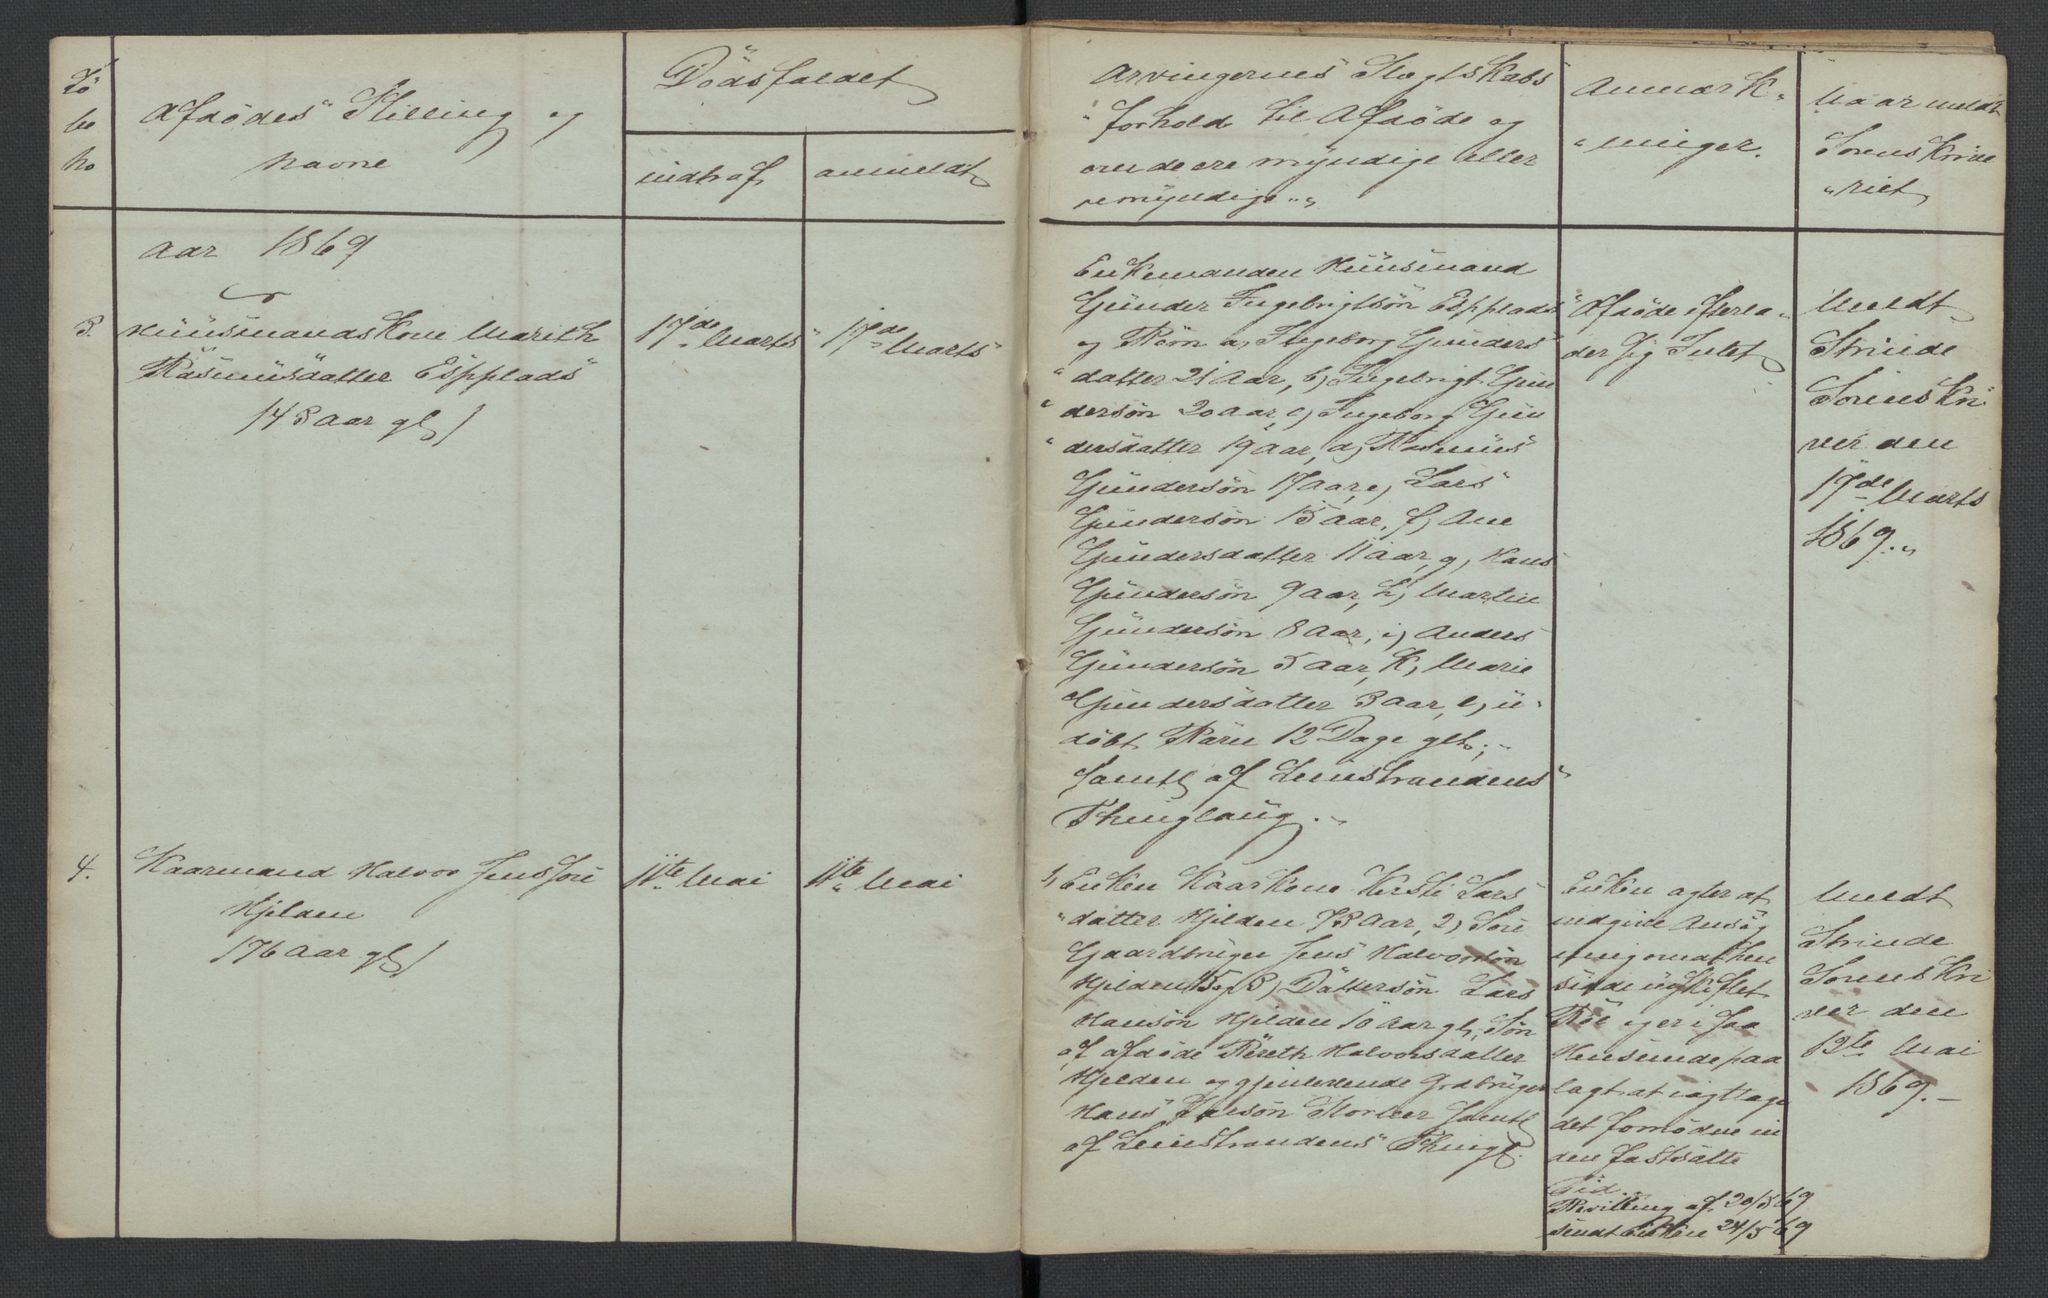 Lö
be
No
Afdødes Stilling og
Navne
Dödsfaldet
indtraf
anmeldt
Arvingernes Slægtskabs
forhold til Afdøde og
om de ere myndige eller
umyndige
Anmærk
ninger.
Naar meldt
Sorenskrive
riet
Aar 1869
3.
Huusmandskone Marith
Rasmusdatter Espplads
/43 Aar gl/
17de Marts
17de Marts
Enkemanden Huusmand
Gunder Ingebrigtsön Espplads
og Börn a, Ingeborg Gunders
datter 21 Aar, b, Ingebrigt Gun
dersön 20 Aar, c, Ingeborg Gun
dersdatter 19 Aar, d, Rasmus
Gundersön 17 Aar, e, Lars
Gundersön 15 Aar, f, Ane
Gundersdatter 11 Aar, g, Hans
Gundersön 9 Aar, h, Martin
Gundersön 8 Aar, i, Anders
Gundersön 5 Aar, k, Marie
Gundersdatter 3 Aar, l, u-
döbt Barn 12 Dage glt.;
Samtl af Leinstrandens
Thinglaug.
Afdöde efterla-
der sig Intet
Meldt
Strinde
Sorenskri
ver den
17de Marts
1869.
4.
Kaarmand Halvor Jenssön
Hjelden
/76 Aar gl/
11te Mai
11te Mai
1, Enken Kaarkone Kersti Lars
datter Hjelden 73 Aar, 2, Sön
Gaardbruger Jens Halvorsön
Hjelden 3, Dattersön Lars
Hansön Hjelden 10 Aar gl, Sön
af afdöde Bereth Halvorsdatter
Hjelden og gjenlevende Grdbruger
Hans Storleer Samtl
af Leinstrandens Thingl.
Enken agter at
indgive Ansög
ning om at hen
sidde i uskiftet
Boe og er i saa
Henseende paa
lagt at iagttage
det fornödne in
den fastsatte
Tid.
Bevilling af 20/5 69
sendt Enken 24/5 69
Meldt
Strinde
Sorenskri
ver den
12te Mai
1869.